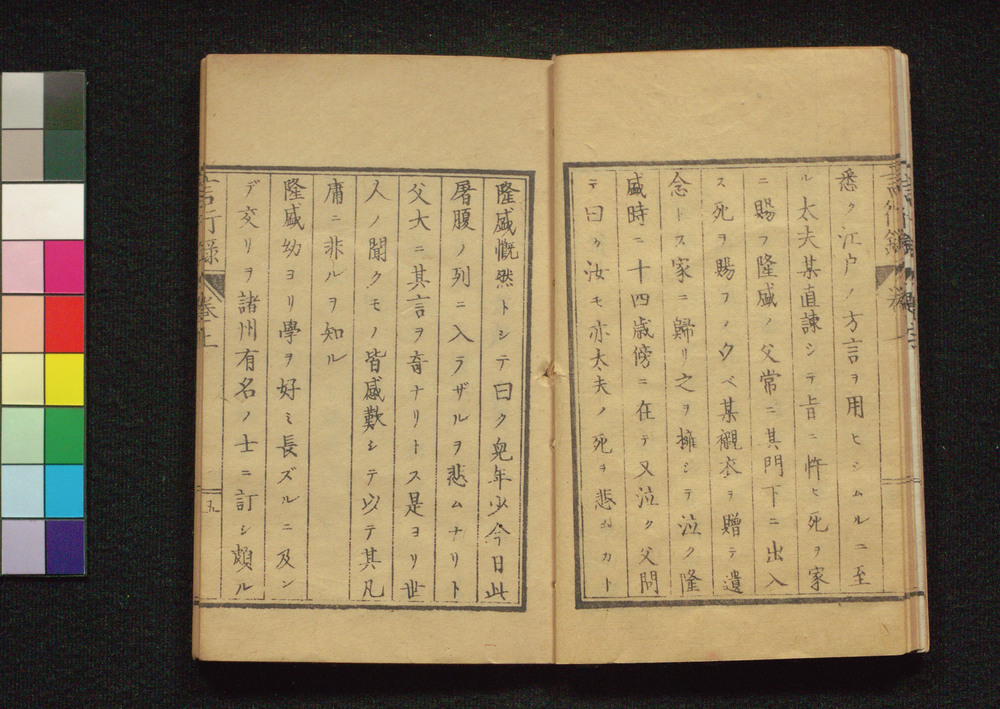 悉ク江戸ノ方言ヲ用ヒシムルニ至
ル太夫某直諫シテ旨ニ忤ヒ死ヲ家
ニ賜フ隆盛ノ父常ニ其門下ニ出入
ス死ヲ賜フノ夕ベ某襯衣ヲ贈テ遺
念トス家ニ歸リ之ヲ擁シテ泣ク隆
盛時ニ十四歳傍ニ在テ又泣ク父問
テ曰ク汝モ亦太夫ノ死ヲ悲ムカト
隆盛慨然トシテ曰ク兒年少今日此
屠腹ノ列ニ入ラザルヲ悲ムナリト
父大ニ其言ヲ奇ナリトス是ヨリ世
人ノ聞クモノ皆感歎シテ以テ其凡
庸ニ非ルヲ知ル
隆盛幼ヨリ學ヲ好ミ長ズルニ及ン
デ交リヲ諸州有名ノ士ニ訂シ頗ル
言行録 卷上 五